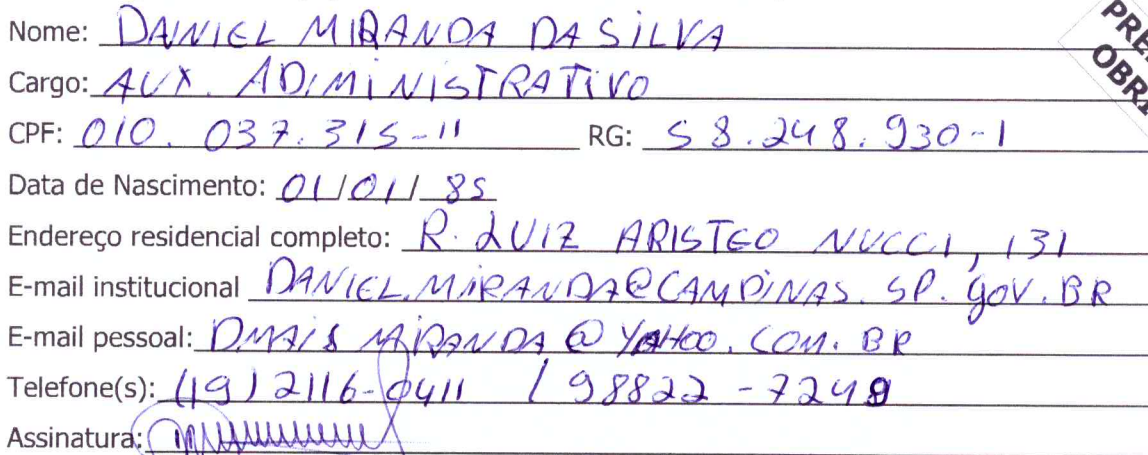 Nome: DANIEL MIRANDA DA SILVA
Cargo: AUX. ADIMINISTRATIVO
CPF: 010. 037.315-11 RG: 58.248.930-1
Data de Nascimento: 01/01/85
Endereço residencial completo: R. LUIZ ARISTEO NUCCI, 131
E-mail institucional DANIEL.MIRANDA@CAMPINAS.SP.gov.BR
E-mail pessoal: @YAHOO.COM.BR
Telefone(s): (19) 2116-0411 / 98822-7249
Assinatura: